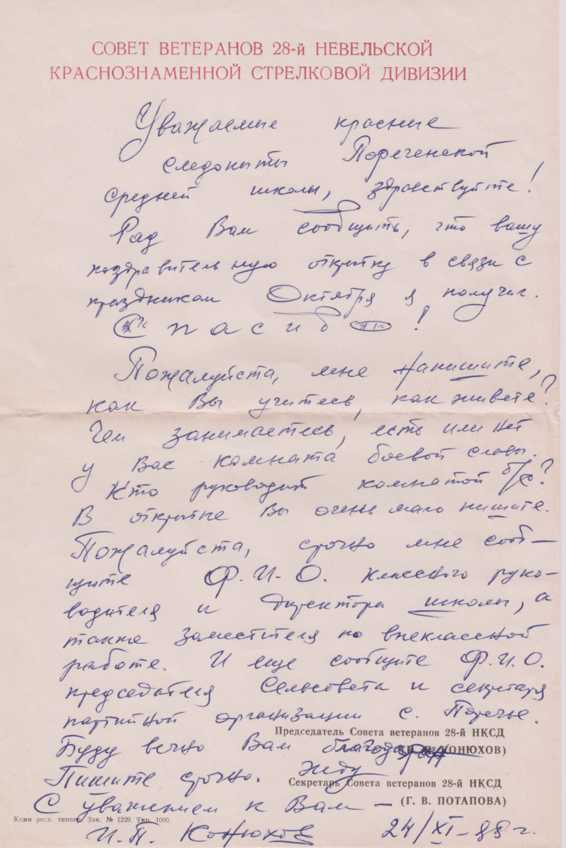 СОВЕТ ВЕТЕРАНОВ 28-й НЕВЕЛЬСКОЙ
КРАСНОЗНАМЕННОЙ СТРЕЛКОВОЙ ДИВИЗИИ
Уважаемые красные
следопыты Пореченской
средней школы, здравствуйте!
Рад Вам сообщить, что вашу
поздравительную открытку в связи с
праздником Октября я получил.
Спасибо!
Пожалуйста, мне напишите,
как Вы учитесь, как живете?
Чем занимаетесь, есть или нет
у Вас комната боевой славы.
Кто руководит комнатой б/с?
В открытке Вы очень мало пишите.
Пожалуйста, срочно мне сооб-
щите Ф.И.О. классного руко-
водителя и директора школы, а
также заместителя по внеклассной
работе. И еще сообщите Ф.И.О.
председателя Сельсовета и секретаря
партийной организации с. Поречье.
Председатель Совета ветеранов 28-й НКСД
Буду вечно Вам благодарен
КОНЮХОВ)
Пишите срочно. Жду
Секретарь Совета ветеранов 28-й НКСД
С уважением к Вам —
(Г. В. ПОТАПОВА)
И.П. Конюхов 24/XI-88 г.
Зак. № 1229 Тир. 1000